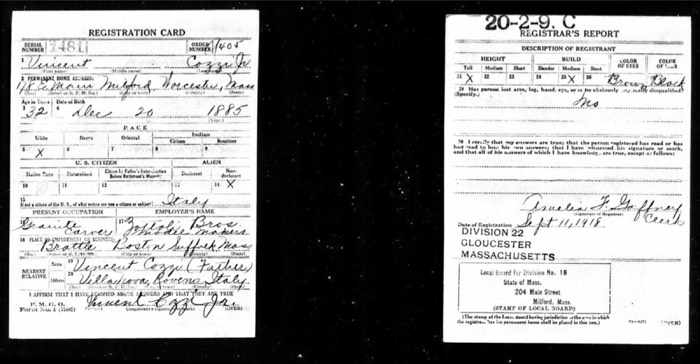 REGISTRATION CARD
SERIAL NUMBER
ORDER NUMBER 1405
1 Vincent Cozzi Jr
(First name) (Middle name)
2 PERMANENT HOME ADDRESS:
E Main Milford Worcester Mass
Age in Years
Date of Birth
32 Dec 20 1885
RACE
White
Negro
Oriental
Indian
Citizen
Noncitizen
5 X
6
7
8
9
U. S. CITIZEN
ALIEN
Native Born
Naturalized
Citizen by Father's Naturalization Before Registrant's Majority
Declarant
Non-declarant
10
11
12
13
14 X
15 If not a citizen of the U.S., of what nation are you a citizen or subject? Italy
PRESENT OCCUPATION
EMPLOYER'S NAME
Granite Carver
Bros
18 PLACE OF EMPLOYMENT OR BUSINESS:
Brattle Boston Suffolk Mass
NEAREST RELATIVE
Name
Address
19 Vincent Cozzi (Father)
20 Villanova Italy
I AFFIRM THAT I HAVE VERIFIED ABOVE ANSWERS AND THAT THEY ARE TRUE
P. M. G. O.
Form No. 1 (Red)
Vincent Cozzi Jr.
20-2-9. C
REGISTRAR'S REPORT
DESCRIPTION OF REGISTRANT
HEIGHT
BUILD
COLOR OF EYES
COLOR OF
Tall
Medium
Short
Slender
Medium
Stout
21 X
22
23
24
25 X
26
Brown
Black
29 Has person lost arm, leg, hand, eye, or is he obviously physically disqualified?
(Specify.)
No
30 I certify that my answers are true; that the person registered has read or has
had read to him his own answers; that I have witnessed his signature or mark,
and that all of his answers of which I have knowledge are true, except as follows:
Amelia F. Gaffney
(Signature of Registrar)
Clerk
Date of Registration Sept 11, 1918
DIVISION 22
GLOUCESTER
MASSACHUSETTS
Local Board for Division No. 18
State of Mass.
204 Main Street
Milford, Mass.
(STAMP OF LOCAL BOARD)
(The stamp of the Local Board having jurisdiction of the area in which
the registrant has his permanent home shall be placed in this box.)
(OVER)